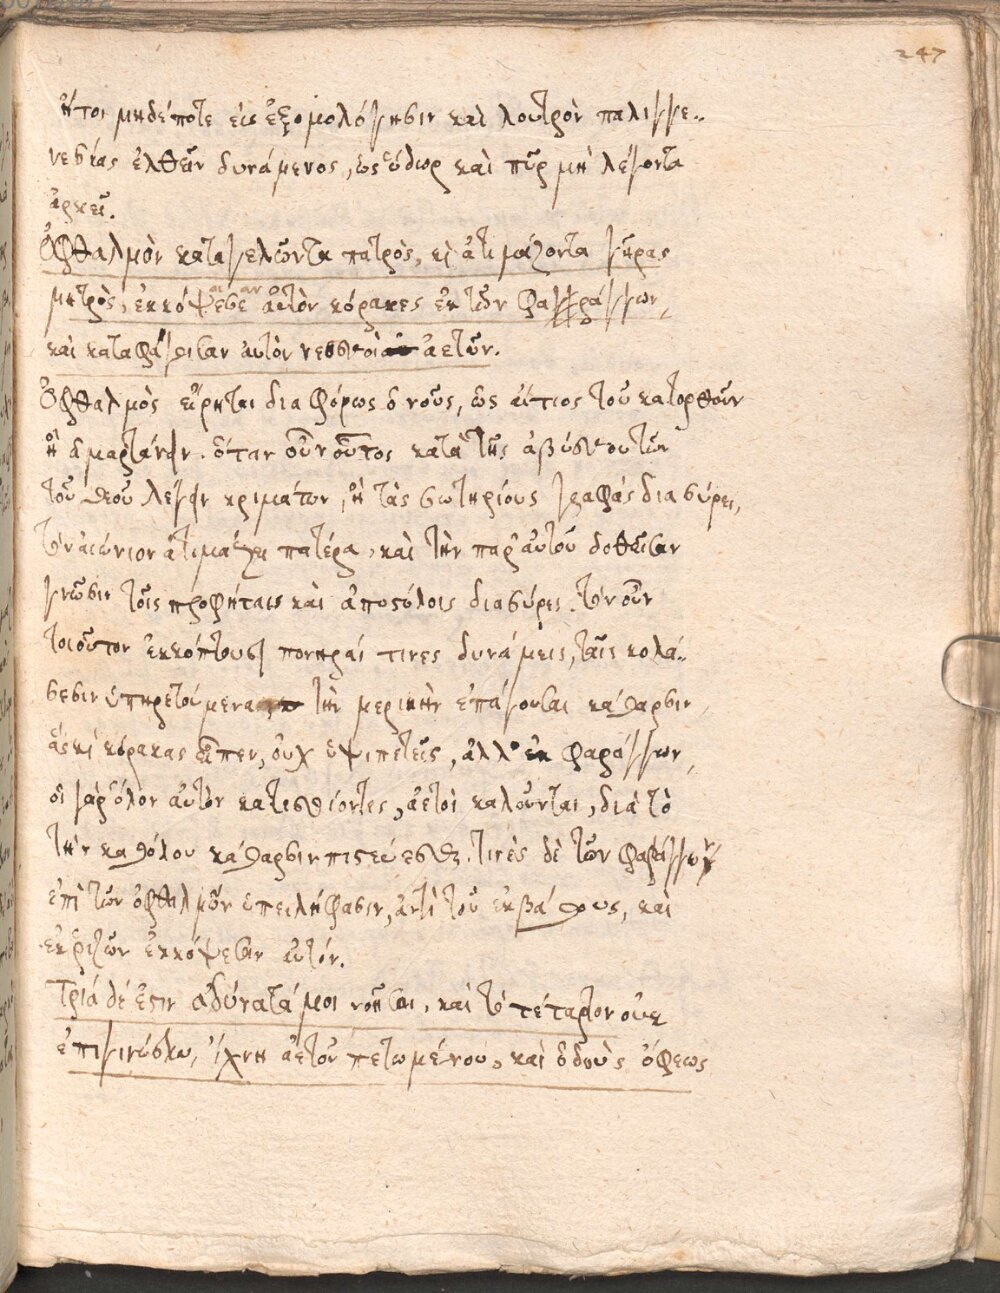 247
ἤτοι μηδέποτε εἰς ἐξομολόγησιν καὶ λουτρὸν παλιγγε..
νεσίας ἐλθεῖν δυνάμενος, ὡς ὕδωρ καὶ πῦρ μὴ λέγοντα
ἀρκεῖ.
Ὀφθαλμὸν καταγελῶντα πατρὸς, κὶ ἀτιμάζοντα γῆρας
μητρὸς, ἐκκόψεσε αὐτὸν κόρακες ἐκ τῶν φαράγγων,
καὶ καταφάγοισαν αὐτὸν νεοσσοὶ ἀετῶν.
Ὀφθαλμὸς εἴρηται διαφόρως ὁ νοῦς, ὡς αἴτιος τοῦ κατορθοῦν
ἢ ἁμαρτάνειν. ὅταν οὖν οὗτος κατὰ τῆς ἀβύσσου τῶν
τοῦ θεοῦ λέγειν κριμάτων, ἢ τὰς σωτηρίους γραφάς διασύρει,
τὸν αἰώνιον ἀτιμάζει πατέρα, καὶ τὴν παρ' αὐτοῦ δοθεῖσαν
γνῶσιν τοῖς προφήταις καὶ ἀποστόλοις διασύρει. τὸν οὖν
τοιοῦτον ἐκκόπτουσι πονηραί τινες δυνάμεις, ταῖς κολά..
σεσιν ὑπηρετούμεναι τὴν μερικὴν ἐπάγουσαι κάθαρσιν,
ἃς κὶ κόρακας εἶπεν, οὐχ ὑψιπετεῖς, ἀλλ' ἐκ φαράγγων,
οἱ γὰρ ὅλον αὐτὸν κατεσθίοντες, ἀετοὶ καλοῦνται, διὰ τὸ
τὴν καθόλου κάθαρσιν πιστεύεσθαι. τινὲς δὲ τῶν φαράγγων
ἐπὶ τῶν ὀφθαλμῶν ὑπειλήφασιν, ἀντὶ τοῦ ἐκ βάθους, καὶ
ἐκ ῥιζῶν ἐκκόψεσαν αὐτόν.
Τρία δέ ἐστιν ἀδύνατά μοι νοῆσαι, καὶ τὸ τέταρτον οὐκ
ἐπιγινώσκω, ἴχνη ἀετοῦ πετωμένου, καὶ ὁδοὺς ὄφεως